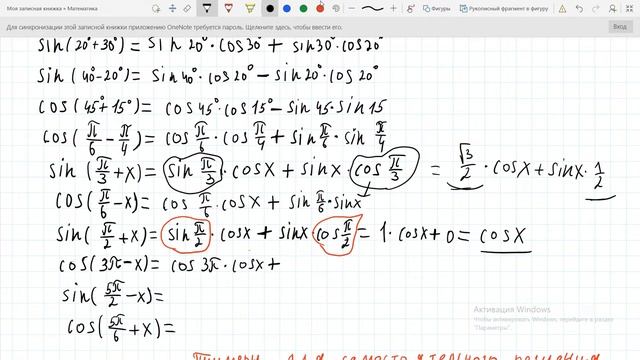 Моя записная книжка » Математика
Фигуры
Рукописный фрагмент в фигуру
Для синхронизации этой записной книжки приложению OneNote требуется пароль. Щелкните здесь, чтобы ввести его.
Вход
sin(20°+30°)= sin20°·cos30° + sin30°·cos20°
sin(40°-20°)= sin40°·cos20° - sin20°·cos20°
cos(45°+15°)= cos45°·cos15° - sin45·sin15
cos(π/6 - π/4)= cos π/6 · cos π/4 + sin π/6 · sin π/4
sin(π/3 + x)= sin π/3 · cosx + sinx · cos π/3 = √3/2 · cosx + sinx · 1/2
cos(π/6 - x)= cos π/6 · cosx + sin π/6 · sinx
sin(π/2 + x)= sin π/2 · cosx + sinx · cos π/2 = 1·cosx + 0 = cosx
cos(3π - x)= cos3π · cosx +
sin(5π/2 - x)=
cos(5π/6 + x)=
Активация Windows
Чтобы активировать Windows, перейдите в раздел "Параметры".